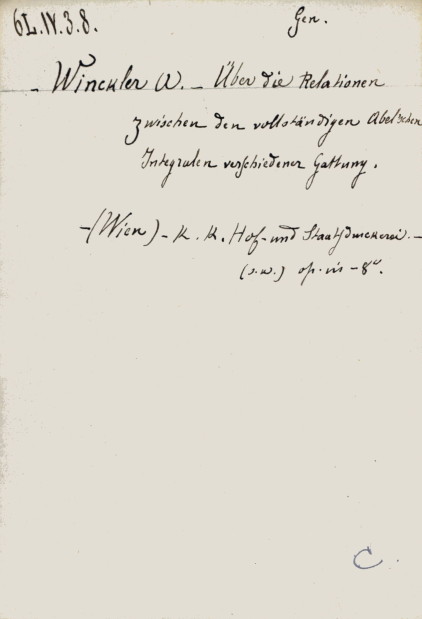 6L.IV.3.8.
Gen.
- Winckler A. - Über die Relationen
zwischen den vollständigen Abel'schen
Integralen verschiedener Gattung.
- (Wien) - K. K. Hof- und Staatsdruckerei. -
(s.a.) op. in - 8º.
C